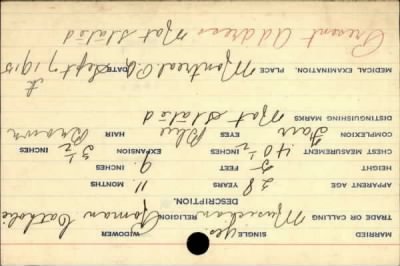 MARRIED SINGLE yes WIDOWER
TRADE OR CALLING Musician RELIGION Roman Catholic
DESCRIPTION.
APPARENT AGE 28 YEARS 11 MONTHS
HEIGHT 5 FEET 9 INCHES
CHEST MEASUREMENT 40 1/2 INCHES EXPANSION 3 1/2 INCHES
COMPLEXION Fair EYES Blue HAIR Brown
DISTINGUISHING MARKS Not Stated
MEDICAL EXAMINATION. PLACE Montreal P.Q. DATE Sept 7th 1915
Present Address Not Stated